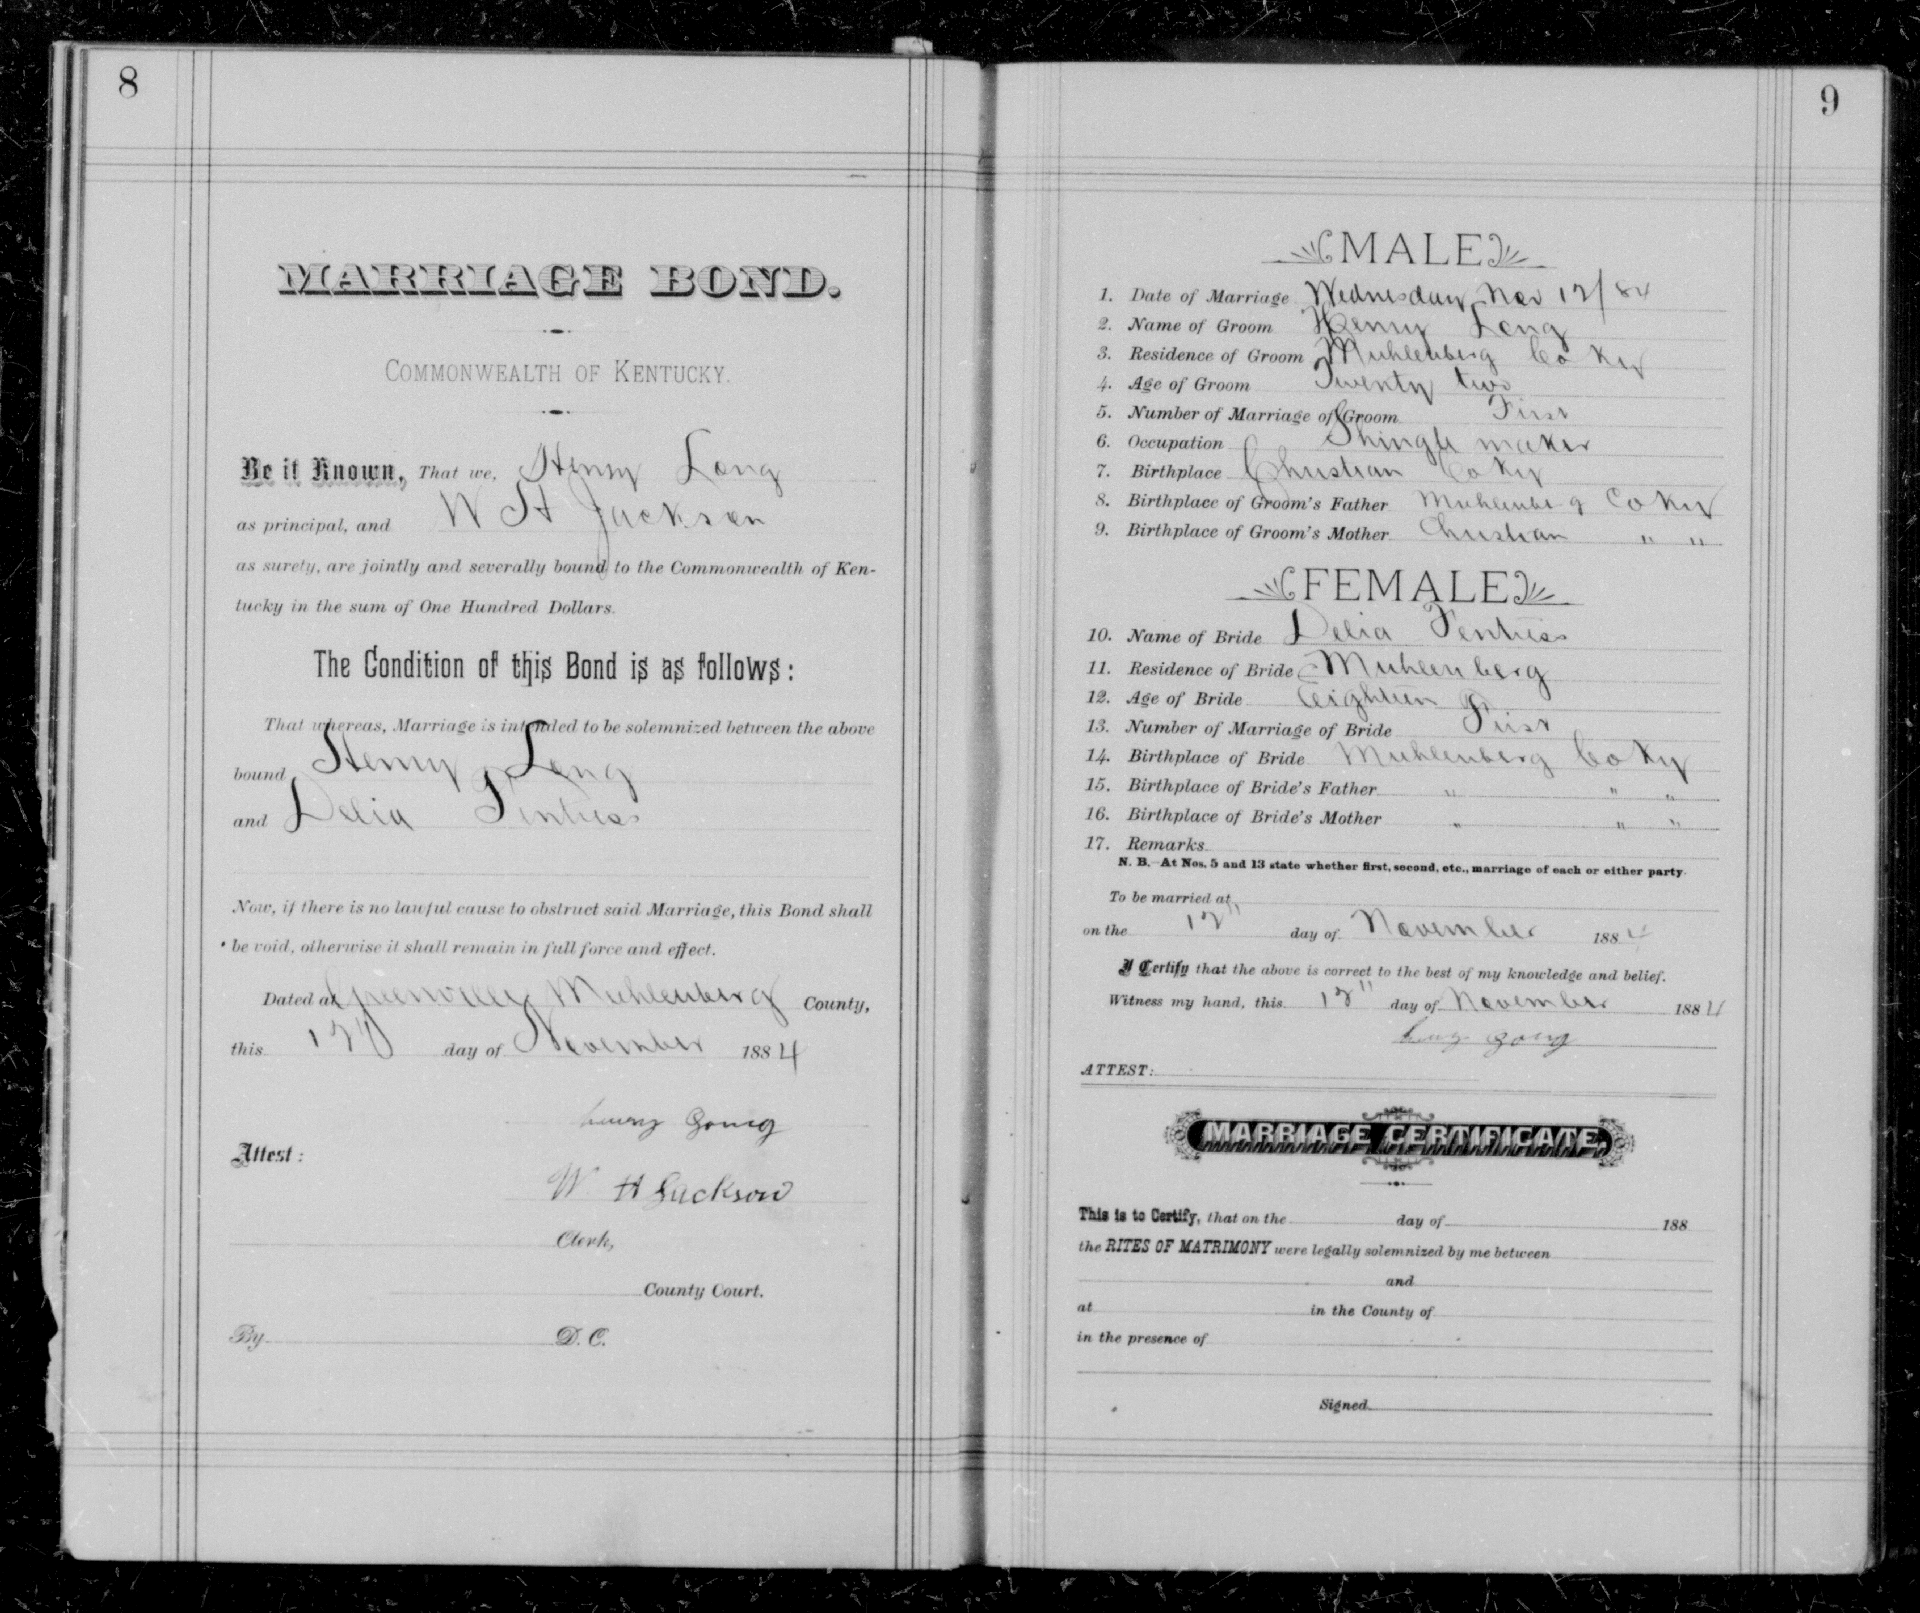 8
MARRIAGE BOND.
COMMONWEALTH OF KENTUCKY.
Be it Known, That we, Henry Long
as principal, and W H Jackson
as surety, are jointly and severally bound to the Commonwealth of Ken-
tucky in the sum of One Hundred Dollars.
The Condition of this Bond is as follows:
That whereas, Marriage is intended to be solemnized between the above
bound Henry Long
and Delia Fentress
Now, if there is no lawful cause to obstruct said Marriage, this Bond shall
be void, otherwise it shall remain in full force and effect.
Dated at Greenville Muhlenberg County,
this 12" day of November 1884
Attest:
W H Jackson
Clerk,
County Court.
By D. C.
9
MALE
1. Date of Marriage Wednesday Nov 12/84
2. Name of Groom Henry Long
3. Residence of Groom Muhlenberg Co Ky
4. Age of Groom Twenty two
5. Number of Marriage of Groom First
6. Occupation Shingle maker
7. Birthplace Christian Co Ky
8. Birthplace of Groom's Father Muhlenberg Co Ky
9. Birthplace of Groom's Mother Christian " "
FEMALE
10. Name of Bride Delia Fentress
11. Residence of Bride Muhlenberg
12. Age of Bride Eighteen
13. Number of Marriage of Bride First
14. Birthplace of Bride Muhlenberg Co Ky
15. Birthplace of Bride's Father " " "
16. Birthplace of Bride's Mother " " "
17. Remarks
N. B.—At Nos. 5 and 13 state whether first, second, etc., marriage of each or either party.
To be married at
on the 12" day of November 1884
I Certify that the above is correct to the best of my knowledge and belief.
Witness my hand, this 12" day of November 1884
ATTEST:
MARRIAGE CERTIFICATE.
This is to Certify, that on the day of 188
the RITES OF MATRIMONY were legally solemnized by me between
and
at in the County of
in the presence of
Signed